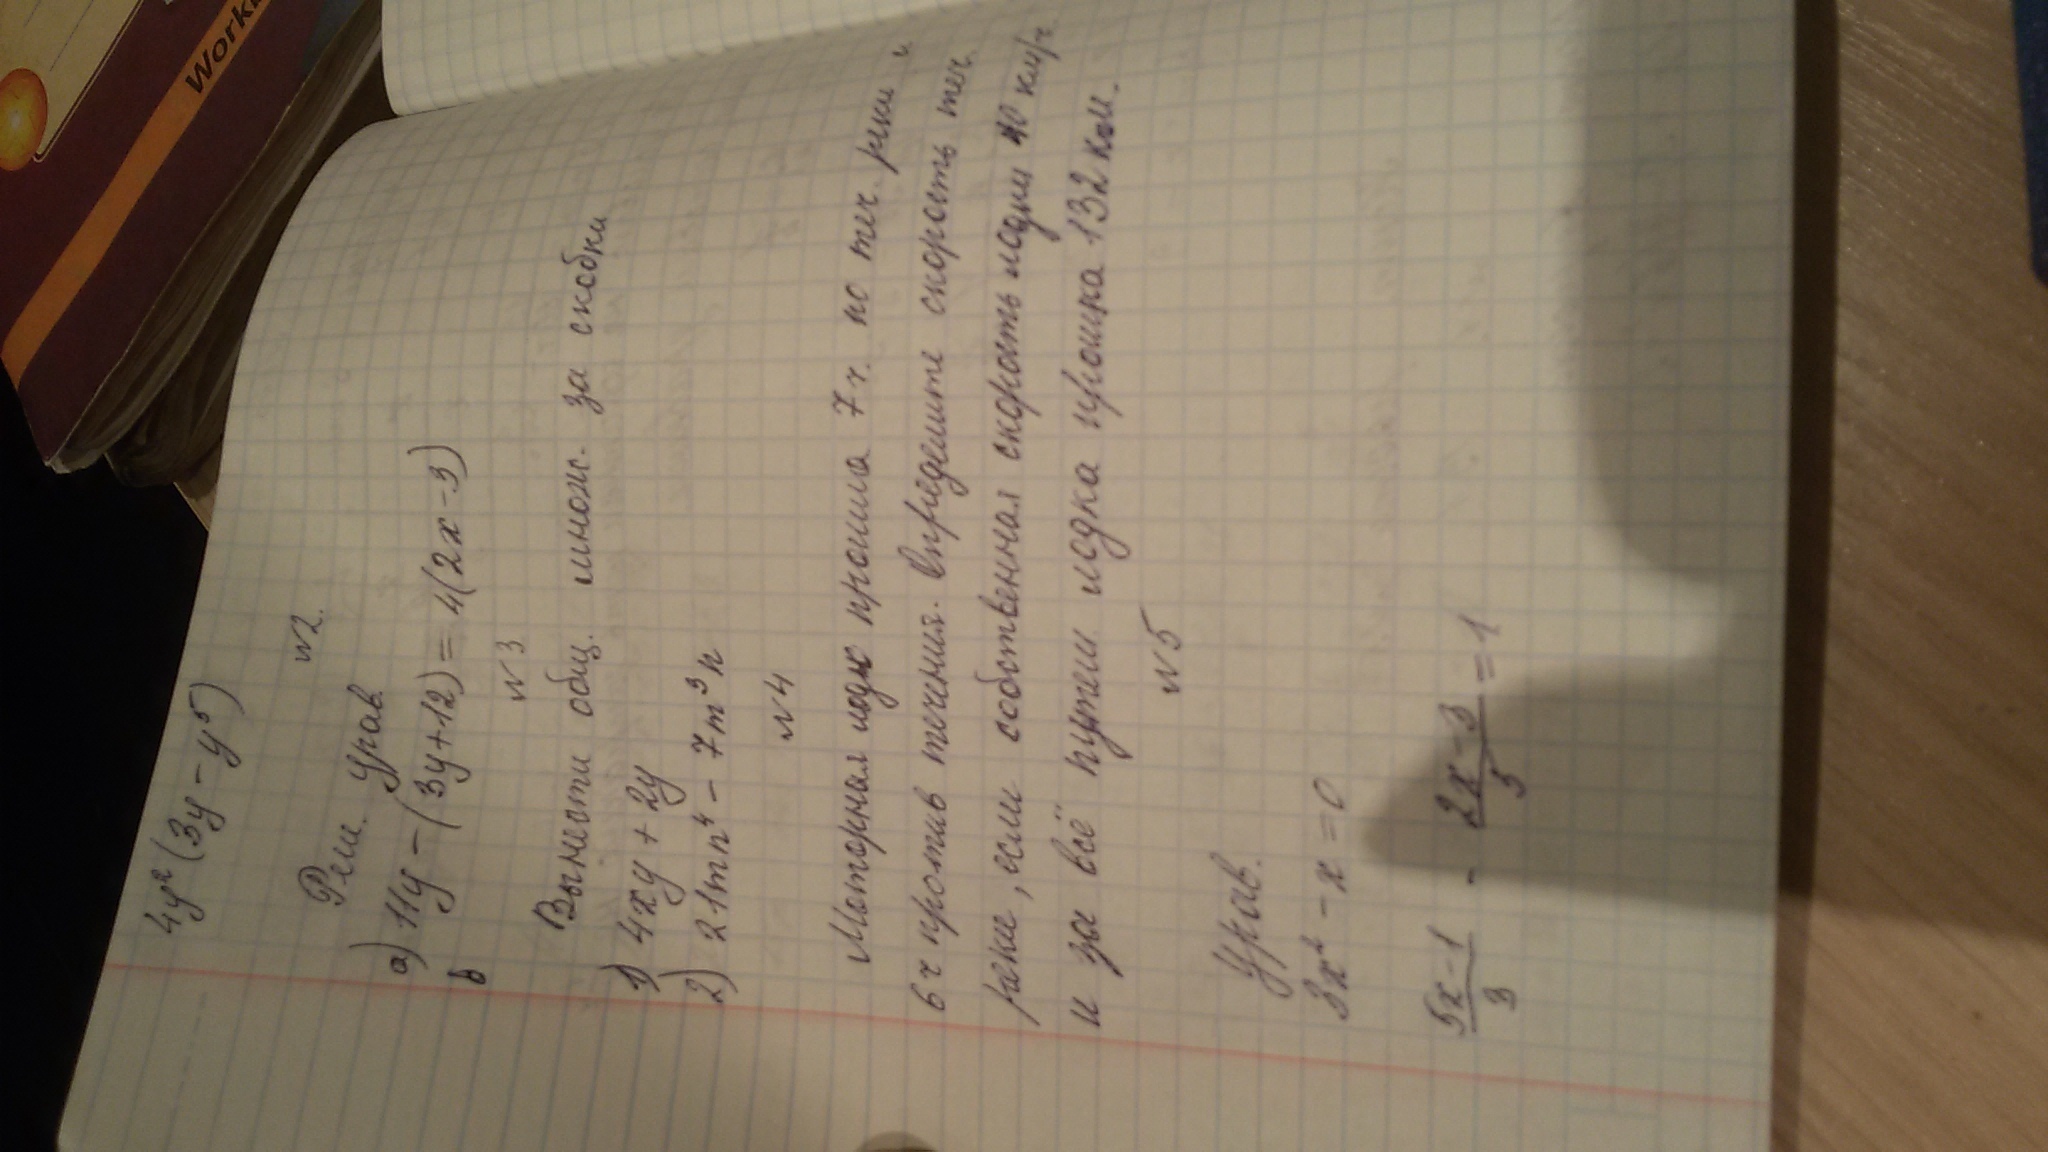 Work
4y²(3y-y⁵)
N2.
Реш. урав.
а) 11y-(3y+12)=4(2x-3)
в
N3
Вынести общ. множ. за скобки
1) 4xy+2y
2) 21mn⁴-7m³n
N4
Моторная лодк прошла 7ч. по теч. реки и
6ч против течения. Определите скорость теч.
реки, если собственная скорость лодки 10 км/ч
и за всё путем лодка прошла 132 км.
N5
Урав.
3x²-x=0
5x-1/3 - 2x-3/5 =1